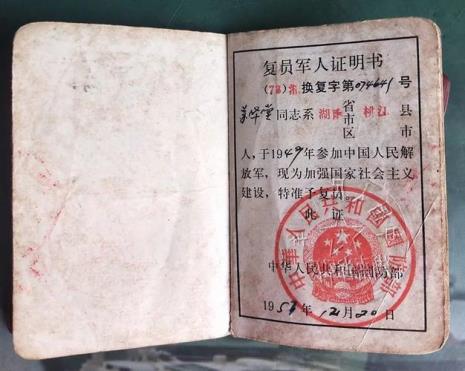 复员军人证明书
(73)湘换复字第074641号
同志系湖南省市区桃江县市
人，于1949年参加中国人民解
放军，现为加强国家社会主义
建设，特准予复员。
此证
中华人民共和国国防部
1957年12月20日